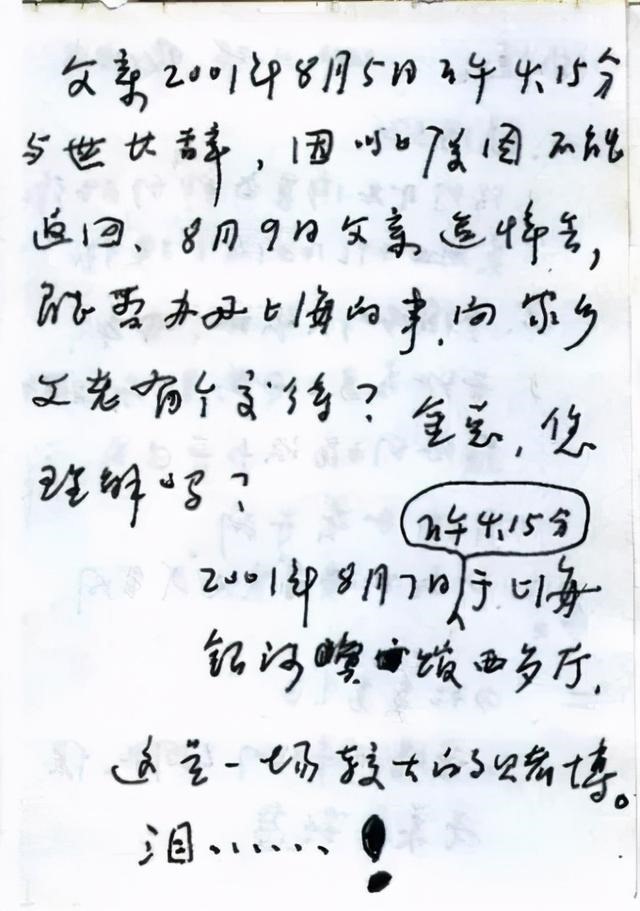 父亲2001年8月5日下午4.15分
与世长辞，因 原因不能
返回、8月9日父亲追悼会，
能否办好上海的事，向家乡
父老有个交待？金总，您
理解吗？
下午4.15分
2001年8月7日于上海
银河宾馆西多厅，
这是一场较大的赌博。
泪……！